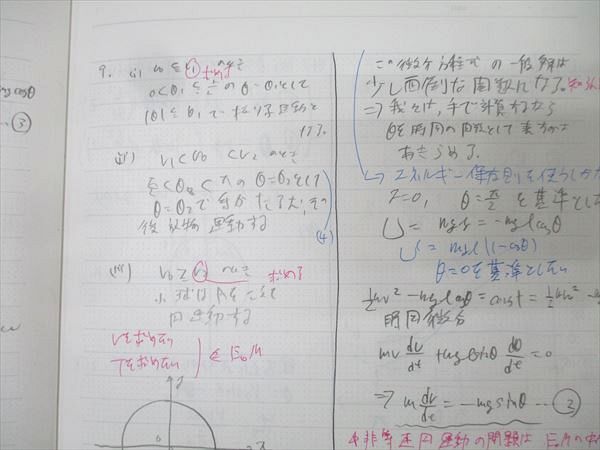 mg cosθ
③
9. (i) v0 ≦ v1 のとき
求める
0<θ1≦π/2 の θ=θ1として
|θ|≦θ1で 振り子運動を
行う。
(ii) v1<v0<v2 のとき
π/2<θ2<π の θ=θ2として
θ=θ2で 糸がたるむ、その
後放物運動する
(4)
(iii) v0≧v2 のとき 求める
小球は
円運動する
vを求めたい
Tを求めたい
E
この微分方程式の一般解は
少し面倒な関数になる。
⇒ 我々は、手で計算するなら
θを時間の関数として表すのは
あきらめる。
→ エネルギー保存則を使うしかない
z=0, θ=π/2 を基準とし
U = mgz = -mglcosθ
U = mgl(1-cosθ)
θ=0を基準としたい
1/2mv² - mglcosθ = const =
時間微分
mv dv/dt + mglsinθ dθ/dt = 0
⇒ m dv/dt = -mgsinθ … ②
非等速円運動の問題は